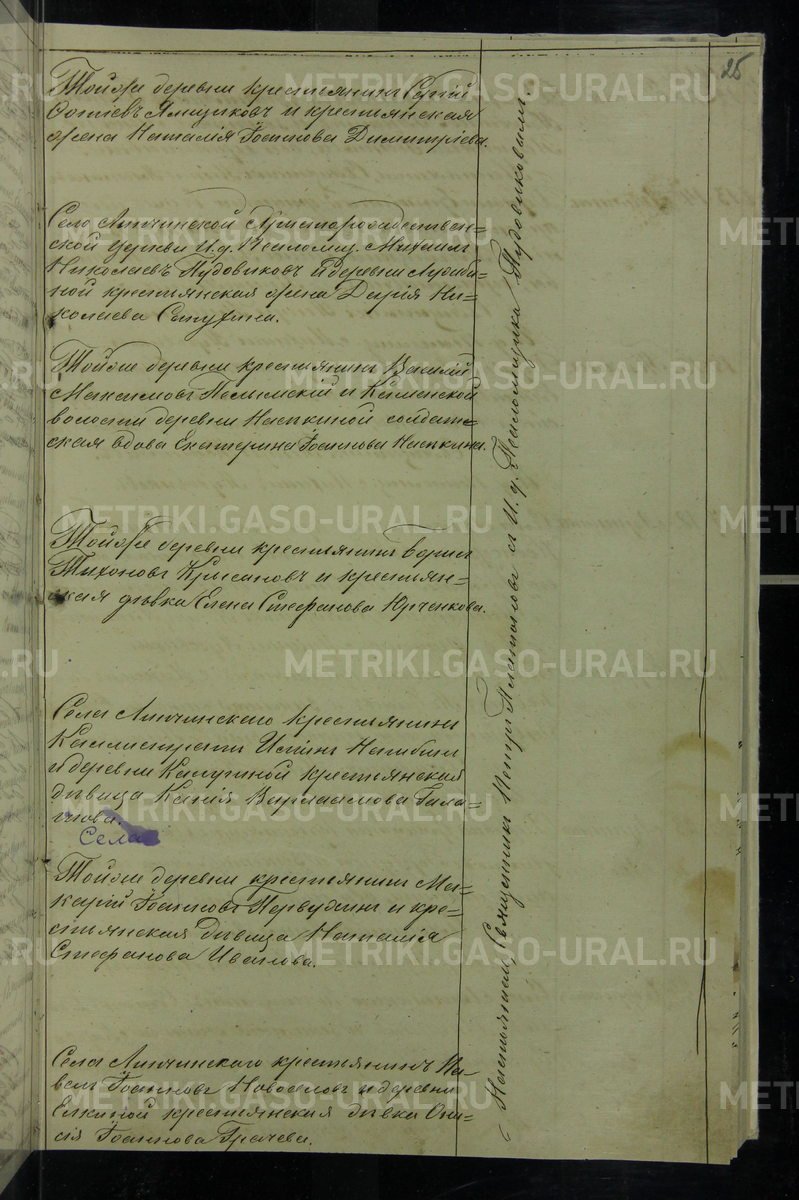 25
Тойже деревни крестьянинъ Сергій
Ямщиковъ и крестьянская
жена Наталія Іоаннова Димитріева.
Село Липчинской Христорождествен=
ской церкви И. д. Псаломщ. Михаилъ
Николаевъ Пудовиковъ и деревни
ной крестьянская жена Дарія Ни=
колаева
Тойже деревни крестьянинъ Василій
Максимовъ Пелымскій и Каменской
волости деревни Насѣкиной солдат=
ская вдова Екатерина Іоаннова Насѣкина.
Тойже деревни крестьянинъ
Тихоновъ Крысановъ и крестьян=
ская дѣвка Елена Стефанова Юрченкова.
Села Липчинскаго крестьянинъ
Каллистратъ Нагибинъ
и деревни Калугиной крестьянская
дѣвица Ксенія Варлаамова Гала=
нова.
Села
Тойже деревни крестьянинъ Ма=
карій Іоанновъ Первухинъ и кре=
стьянская дѣвица Наталія
Стефанова Иванова.
Села Липчинскаго крестьянинъ Па=
велъ Іоанновъ Новоселовъ и деревни
Елкиной крестьянская дѣвка Они=
сія Іоаннова Грачева.
Священникъ Петръ Платоновъ и И. д. Псаломщика Пудовиковымъ.
METRIKI.GASO-URAL.RU